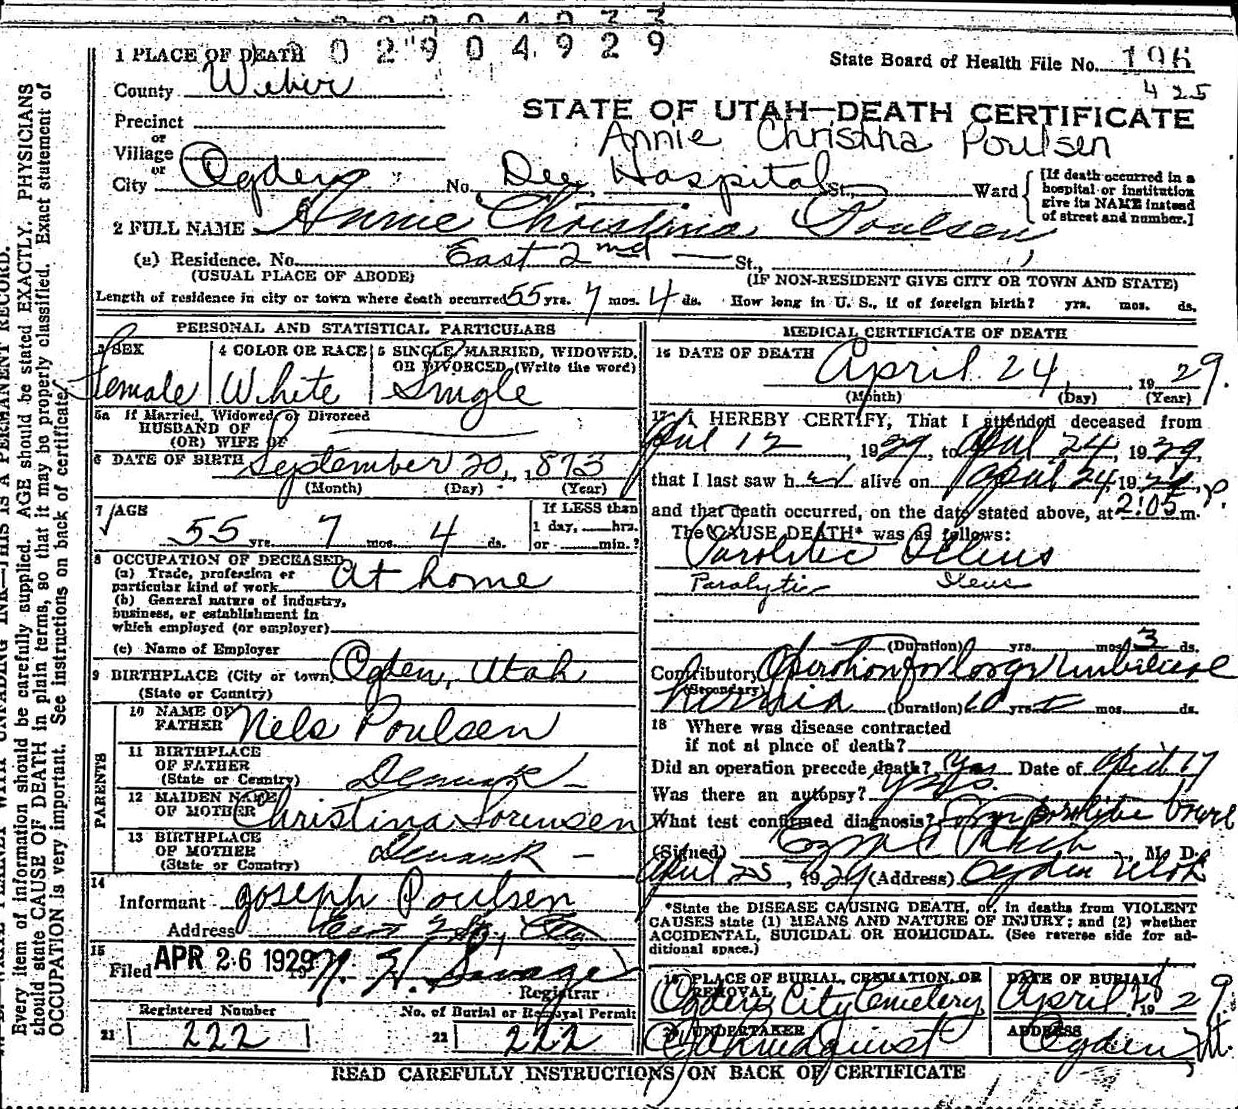 02904929
1 PLACE OF DEATH
State Board of Health File No. 196
425
County Weber
STATE OF UTAH—DEATH CERTIFICATE
Precinct
Annie Christina Poulsen
or
Village
or
City Ogden No. Dee Hospital St. Ward
[If death occurred in a hospital or institution give its NAME instead of street and number.]
2 FULL NAME Annie Christina Poulsen
(a) Residence. No. East 2nd St.,
(USUAL PLACE OF ABODE) (IF NON-RESIDENT GIVE CITY OR TOWN AND STATE)
Length of residence in city or town where death occurred 55 yrs. 7 mos. 4 ds. How long in U. S., if of foreign birth? yrs. mos. ds.
PERSONAL AND STATISTICAL PARTICULARS
3 SEX
Female
4 COLOR OR RACE
White
5 SINGLE, MARRIED, WIDOWED, OR DIVORCED (Write the word)
Single
5a If Married, Widowed, or Divorced
HUSBAND OF
(OR) WIFE OF
6 DATE OF BIRTH September 20, 1873
(Month) (Day) (Year)
7 AGE
55 yrs. 7 mos. 4 ds.
If LESS than
1 day, hrs.
or min.?
8 OCCUPATION OF DECEASED
(a) Trade, profession or
particular kind of work At home
(b) General nature of industry,
business, or establishment in
which employed (or employer)
(c) Name of Employer
9 BIRTHPLACE (City or town) Ogden, Utah
(State or Country)
PARENTS
10 NAME OF
FATHER Nels Poulsen
11 BIRTHPLACE
OF FATHER
(State or Country) Denmark
12 MAIDEN NAME
OF MOTHER Christina Sorensen
13 BIRTHPLACE
OF MOTHER
(State or Country) Denmark
14
Informant Joseph Poulsen
Address East 2 St., City
15
Filed APR 26 1929 Savage
Registrar
Registered Number
21 222
No. of Burial or Removal Permit
22 222
MEDICAL CERTIFICATE OF DEATH
16 DATE OF DEATH April 24, 1929.
(Month) (Day) (Year)
17 I HEREBY CERTIFY, That I attended deceased from
April 12, 1929, to April 24, 1929,
that I last saw her alive on April 24, 1929,
and that death occurred, on the date stated above, at 2:05 P. m.
The CAUSE DEATH* was as follows:
Paralitic Illeus
Paralytic Ileus
(Duration) yrs. mos. 3 ds.
Contributory Operation for large Umbilical
(Secondary) Hernia (Duration) 10 yrs. mos. ds.
18 Where was disease contracted
if not at place of death?
Did an operation precede death? Yes Date of April 17
Was there an autopsy? Yes.
What test confirmed diagnosis?
(Signed) M. D.
April 25, 1929 (Address) Ogden Utah
*State the DISEASE CAUSING DEATH, or, in deaths from VIOLENT
CAUSES state (1) MEANS AND NATURE OF INJURY; and (2) whether
ACCIDENTAL, SUICIDAL OR HOMICIDAL. (See reverse side for ad-
ditional space.)
19 PLACE OF BURIAL, CREMATION, OR
REMOVAL
Ogden City Cemetery
DATE OF BURIAL
April 28 1929
20 UNDERTAKER
ADDRESS
Ogden Ut.
READ CAREFULLY INSTRUCTIONS ON BACK OF CERTIFICATE
WRITE PLAINLY WITH UNFADING INK—THIS IS A PERMANENT RECORD.
Every item of information should be carefully supplied. AGE should be stated EXACTLY. PHYSICIANS
should state CAUSE OF DEATH in plain terms, so that it may be properly classified. Exact statement of
OCCUPATION is very important. See instructions on back of certificate.